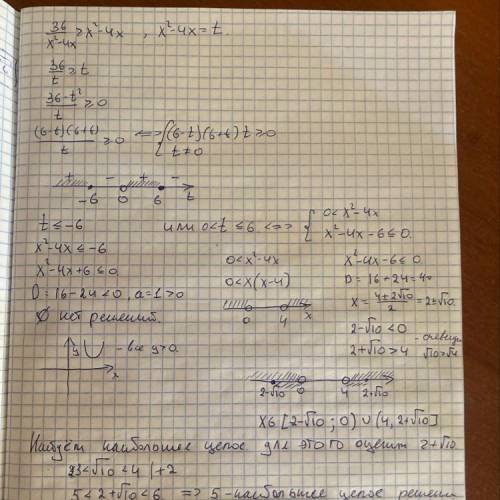 36/(x²-4x) ≥ x²-4x , x²-4x = t.
36/t ≥ t
(36-t²)/t ≥ 0
(6-t)(6+t)/t ≥ 0 <=> { (6-t)(6+t)t ≥ 0
t ≠ 0
+ - + -
-6 0 6 t
t ≤ -6 или 0<t ≤ 6 <=> { 0<x²-4x
x²-4x-6 ≤ 0.
x²-4x ≤ -6
x²-4x+6 ≤ 0
D = 16-24 < 0, a=1>0
∅ нет решений.
y x - все y>0.
0<x²-4x
0<x(x-4)
0 4 x
x²-4x-6 ≤ 0
D = 16+24 = 40
x = (4±2√10)/2 = 2±√10.
2-√10 < 0
2+√10 > 4
√10>√4
2-√10 0 4 2+√10
x∈ [2-√10 ; 0) ∪ (4, 2+√10]
Найдем наибольшее целое. Для этого оценим 2+√10.
3<√10<4 | +2
5<2+√10<6 => 5 - наибольшее целое решени